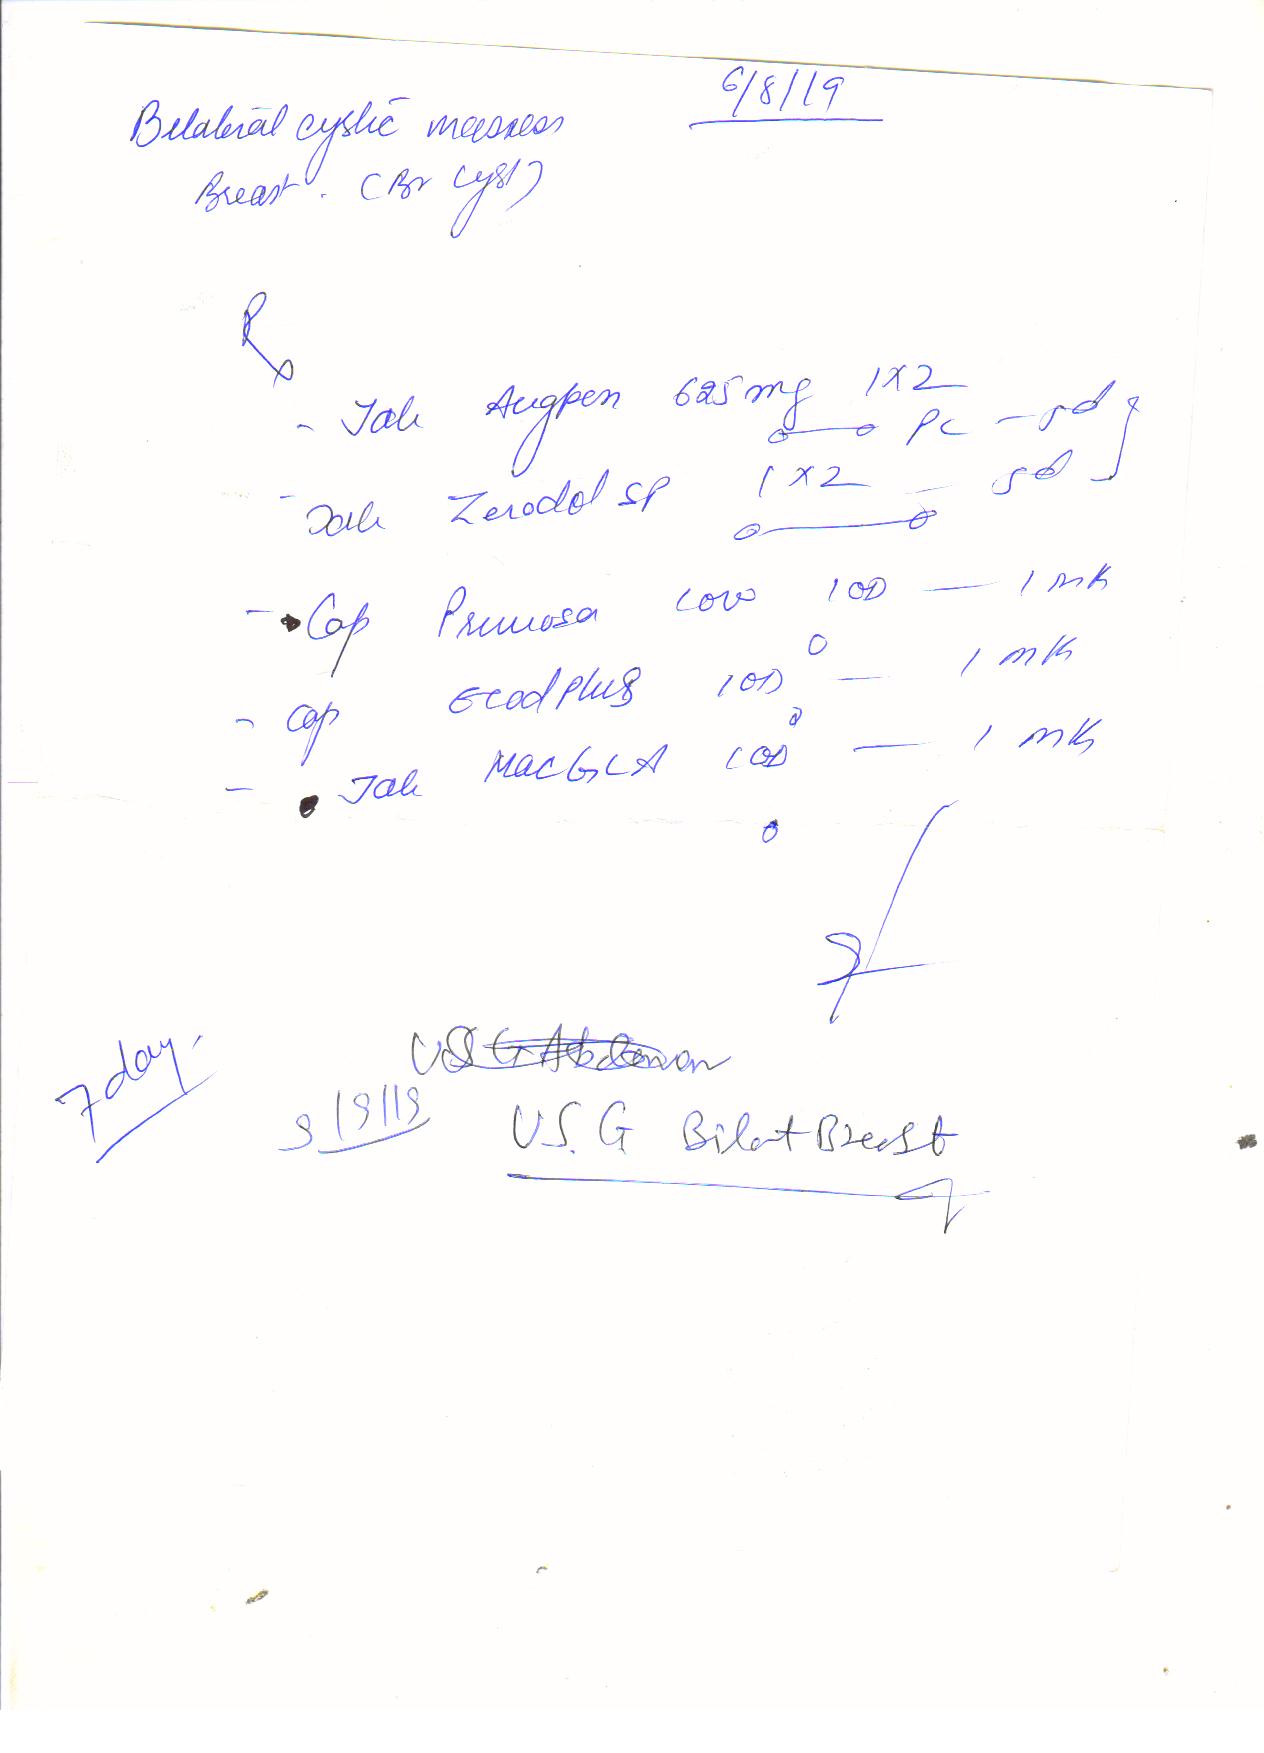 6/8/19
Bilateral cystic masses
Breast. (Br Cyst)
R
- Tab Augpen 625mg 1X2
PC - 5d
- Tab Zerodol SP 1X2 - 5d
- Cap Primosa 1000 1OD - 1 mth
- Cap Ecod Plus 1OD - 1 mth
- Tab MACGLA 1OD - 1 mth
7 day.
USG Abdomen
9/9/19 USG Bilat Breast